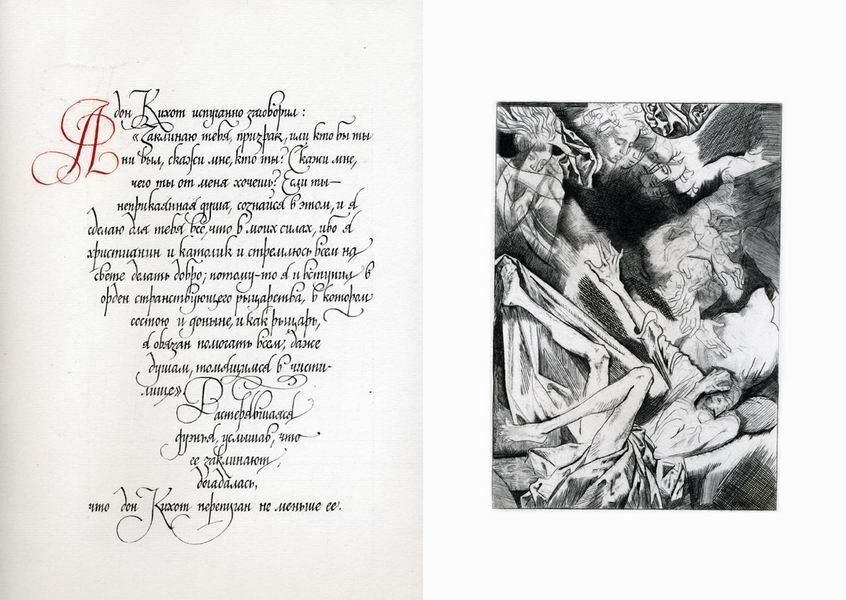 А дон Кихот испуганно заговорил:
«Заклинаю тебя, призрак, или кто бы ты
ни был, скажи мне, кто ты? Скажи мне,
чего ты от меня хочешь? Если ты —
неприкаянная душа, сознайся в этом, и я
сделаю для тебя всё, что в моих силах, ибо я
христианин и католик и стремлюсь всем на
свете делать добро; потому-то я и вступил в
орден странствующего рыцарства, в котором
состою и доныне, и как рыцарь,
я обязан помогать всем; даже
душам, томящимся в чисти-
лище». Растерявшаяся
дуэнья, услышав, что
ее заклинают,
догадалась,
что дон Кихот перепуган не меньше ее.